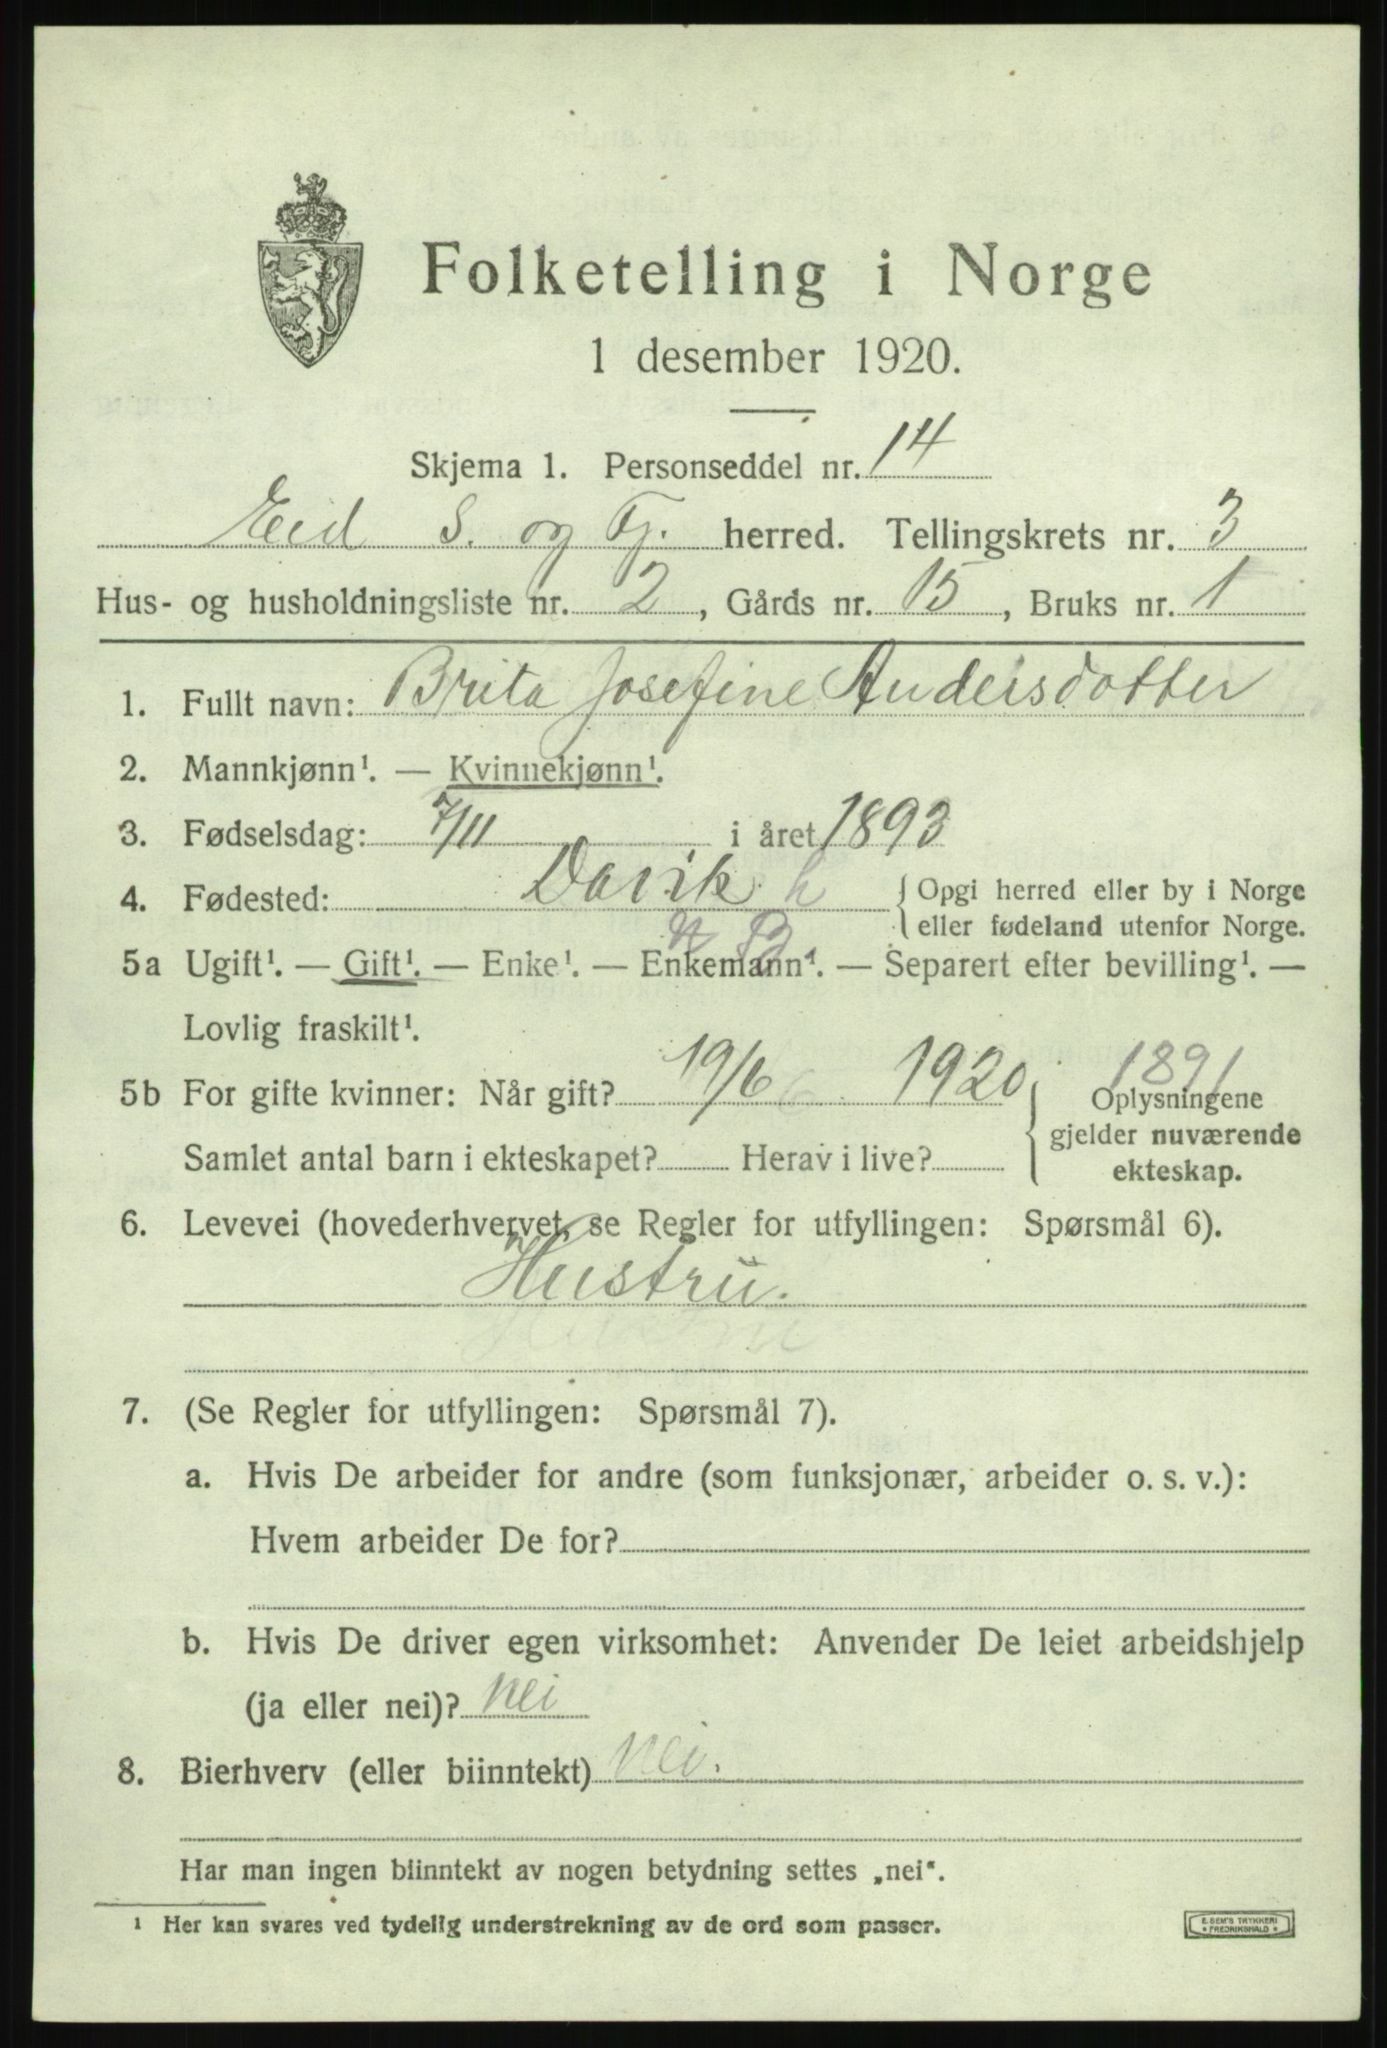 Folketelling i Norge
1 desember 1920.
Skjema 1. Personseddel nr. 14
Eid S. og Fj. herred. Tellingskrets nr. 3
Hus- og husholdningsliste nr. 2, Gårds nr. 15, Bruks nr. 1
1. Fullt navn: Brita Josefine Andersdotter
2. Mannkjønn¹. — Kvinnekjønn¹.
3. Fødselsdag: 7/11 i året 1893
4. Fødested: Davik h { Opgi herred eller by i Norge
eller fødeland utenfor Norge.
5a Ugift¹. — Gift¹. — Enke¹. — Enkemann¹. — Separert efter bevilling¹. —
Lovlig fraskilt¹.
5b For gifte kvinner: Når gift? 19/6 6 1920 1891
Oplysningene
gjelder nuværende
Samlet antal barn i ekteskapet? Herav i live?
ekteskap.
6. Levevei (hovederhvervet, se Regler for utfyllingen: Spørsmål 6).
Hustru.
Hustru
7. (Se Regler for utfyllingen: Spørsmål 7).
a. Hvis De arbeider for andre (som funksjonær, arbeider o. s. v.):
Hvem arbeider De for?
b. Hvis De driver egen virksomhet: Anvender De leiet arbeidshjelp
(ja eller nei)? nei
8. Bierhverv (eller biinntekt) nei.
Har man ingen biinntekt av nogen betydning settes „nei“.
¹ Her kan svares ved tydelig understrekning av de ord som passer.
E. SEM'S TRYKKERI
* FREDRIKSHALD *